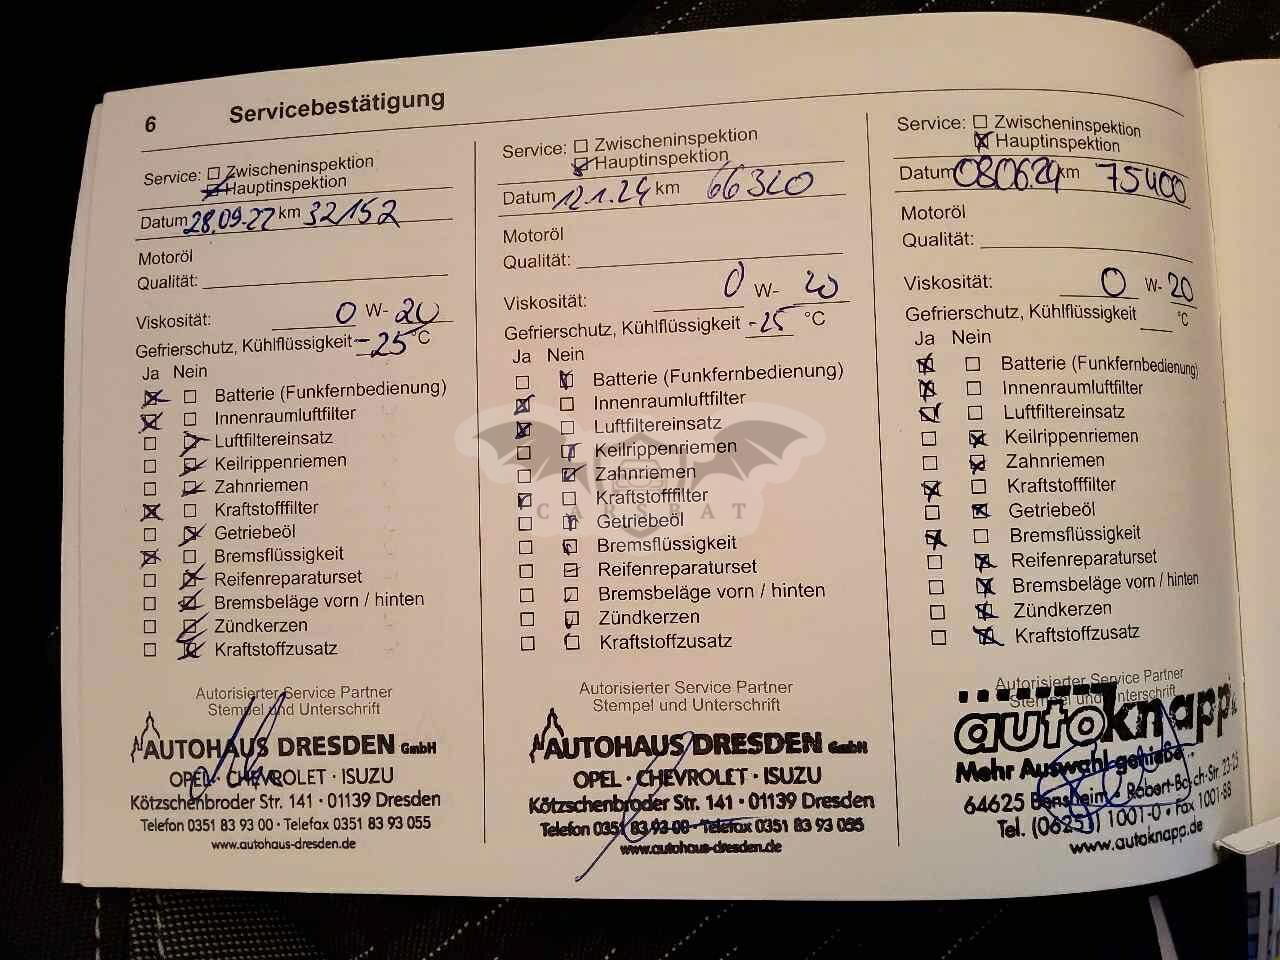 6 Servicebestätigung
Service: Zwischeninspektion
Hauptinspektion
Datum 28.09.22 km 32152
Motoröl
Qualität:
Viskosität: 0 W- 20
Gefrierschutz, Kühlflüssigkeit -25 °C
Ja Nein
Batterie (Funkfernbedienung)
Innenraumluftfilter
Luftfiltereinsatz
Keilrippenriemen
Zahnriemen
Kraftstofffilter
Getriebeöl
Bremsflüssigkeit
Reifenreparaturset
Bremsbeläge vorn / hinten
Zündkerzen
Kraftstoffzusatz
Autorisierter Service Partner
Stempel und Unterschrift
AUTOHAUS DRESDEN GmbH
OPEL · CHEVROLET · ISUZU
Kötzschenbroder Str. 141 · 01139 Dresden
Telefon 0351 83 93 00 · Telefax 0351 83 93 055
www.autohaus-dresden.de
Service: Zwischeninspektion
Hauptinspektion
Datum 12.1.24 km 66320
Motoröl
Qualität:
Viskosität: 0 W- 20
Gefrierschutz, Kühlflüssigkeit -25 °C
Ja Nein
Batterie (Funkfernbedienung)
Innenraumluftfilter
Luftfiltereinsatz
Keilrippenriemen
Zahnriemen
Kraftstofffilter
Getriebeöl
Bremsflüssigkeit
Reifenreparaturset
Bremsbeläge vorn / hinten
Zündkerzen
Kraftstoffzusatz
Autorisierter Service Partner
Stempel und Unterschrift
AUTOHAUS DRESDEN GmbH
OPEL · CHEVROLET · ISUZU
Kötzschenbroder Str. 141 · 01139 Dresden
Telefon 0351 83 93 00 · Telefax 0351 83 93 055
www.autohaus-dresden.de
Service: Zwischeninspektion
Hauptinspektion
Datum 08.06.24 km 75400
Motoröl
Qualität:
Viskosität: 0 W- 20
Gefrierschutz, Kühlflüssigkeit °C
Ja Nein
Batterie (Funkfernbedienung)
Innenraumluftfilter
Luftfiltereinsatz
Keilrippenriemen
Zahnriemen
Kraftstofffilter
Getriebeöl
Bremsflüssigkeit
Reifenreparaturset
Bremsbeläge vorn / hinten
Zündkerzen
Kraftstoffzusatz
Autorisierter Service Partner
Stempel und Unterschrift
autoknapp
Mehr Auswahl genießen
64625 Bensheim · Robert-Bosch-Str. 23-25
Tel. (06251) 1001-0 · Fax 1001-88
www.autoknapp.de
CARSBAT